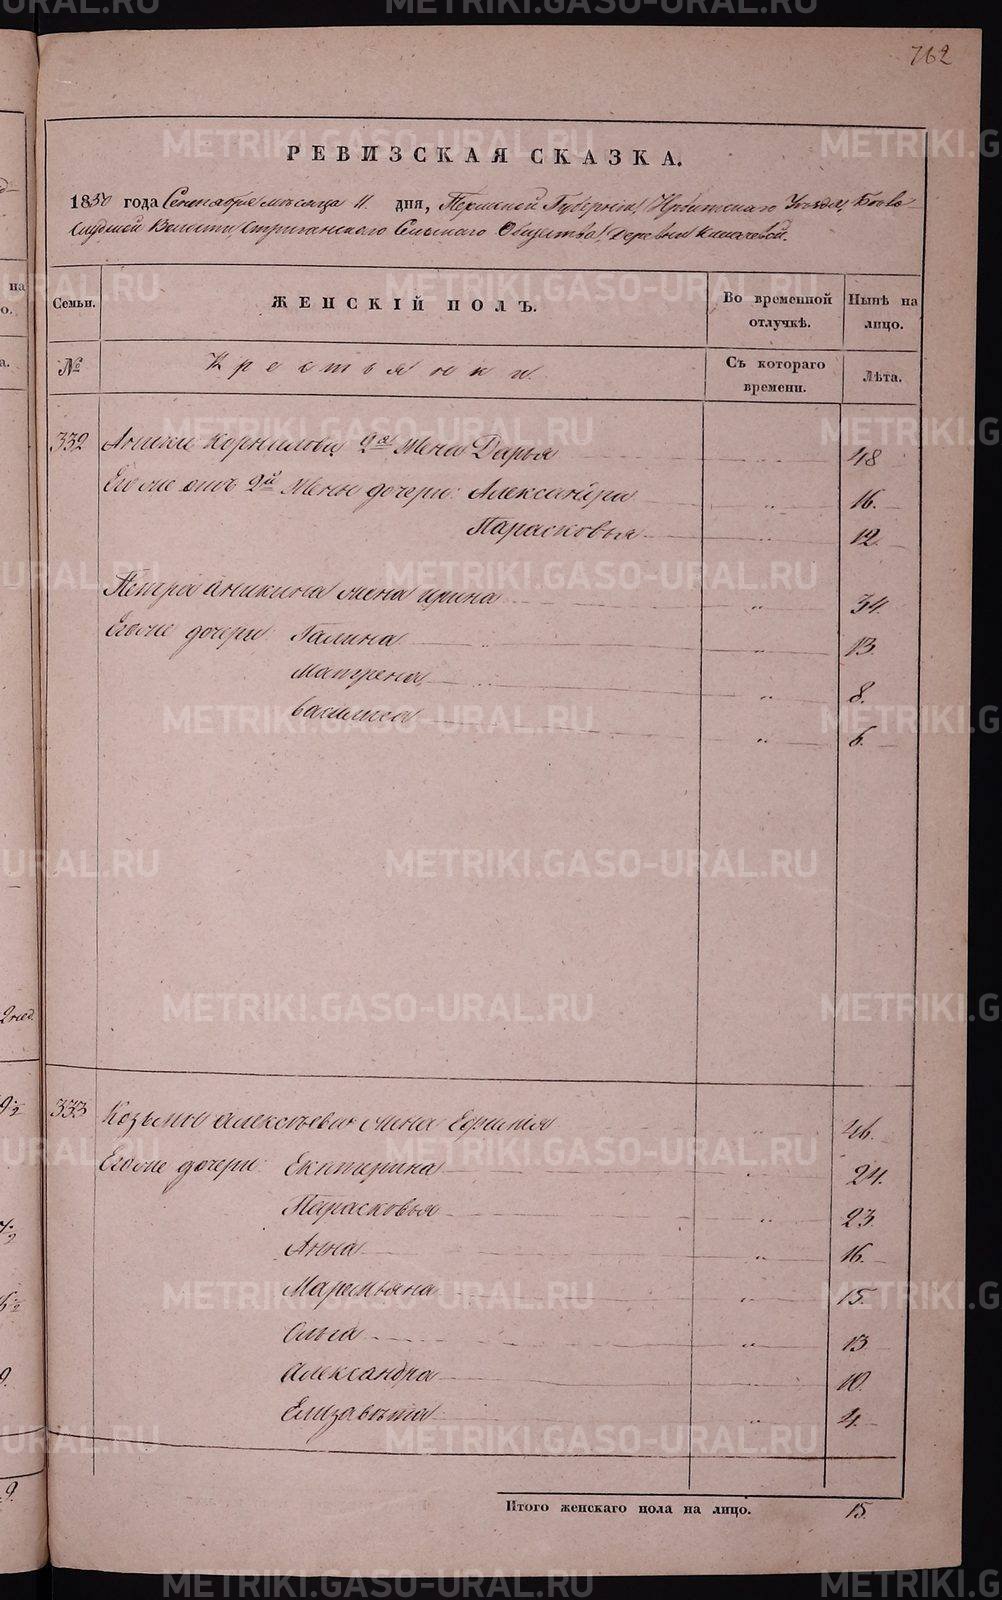 762
РЕВИЗСКАЯ СКАЗКА.
1850 года Сентября месяца 11 дня, Пермской Губернiи, Ирбитскаго Уѣзда, Бѣло-
слудской Волости, Стриганскаго Сельскаго Общества, деревни
Семьи.
ЖЕНСКІЙ ПОЛЪ.
Во временной отлучкѣ.
Нынѣ на лицо.
№
Крестьянки
Съ котораго времени.
Лѣта.
332 Аники Корнилова 2я жена Дарья 48
Его же отъ 2й жены дочери: Александра „ 16.
Парасковья „ 12
Петра Аникина жена Ирина „ 34.
Его же дочери: Галина „ 13.
Матрена „ 8.
Василиса „ 6.
333 Козьмы Алексѣева жена Ефимия „ 46.
Его же дочери: Екатерина „ 24.
Парасковья „ 23
Анна „ 16.
Маремьяна „ 15.
Ольга „ 13
Александра 10.
Елизавѣта „ 4.
Итого женскаго пола на лицо. 15.
METRIKI.GASO-URAL.RU